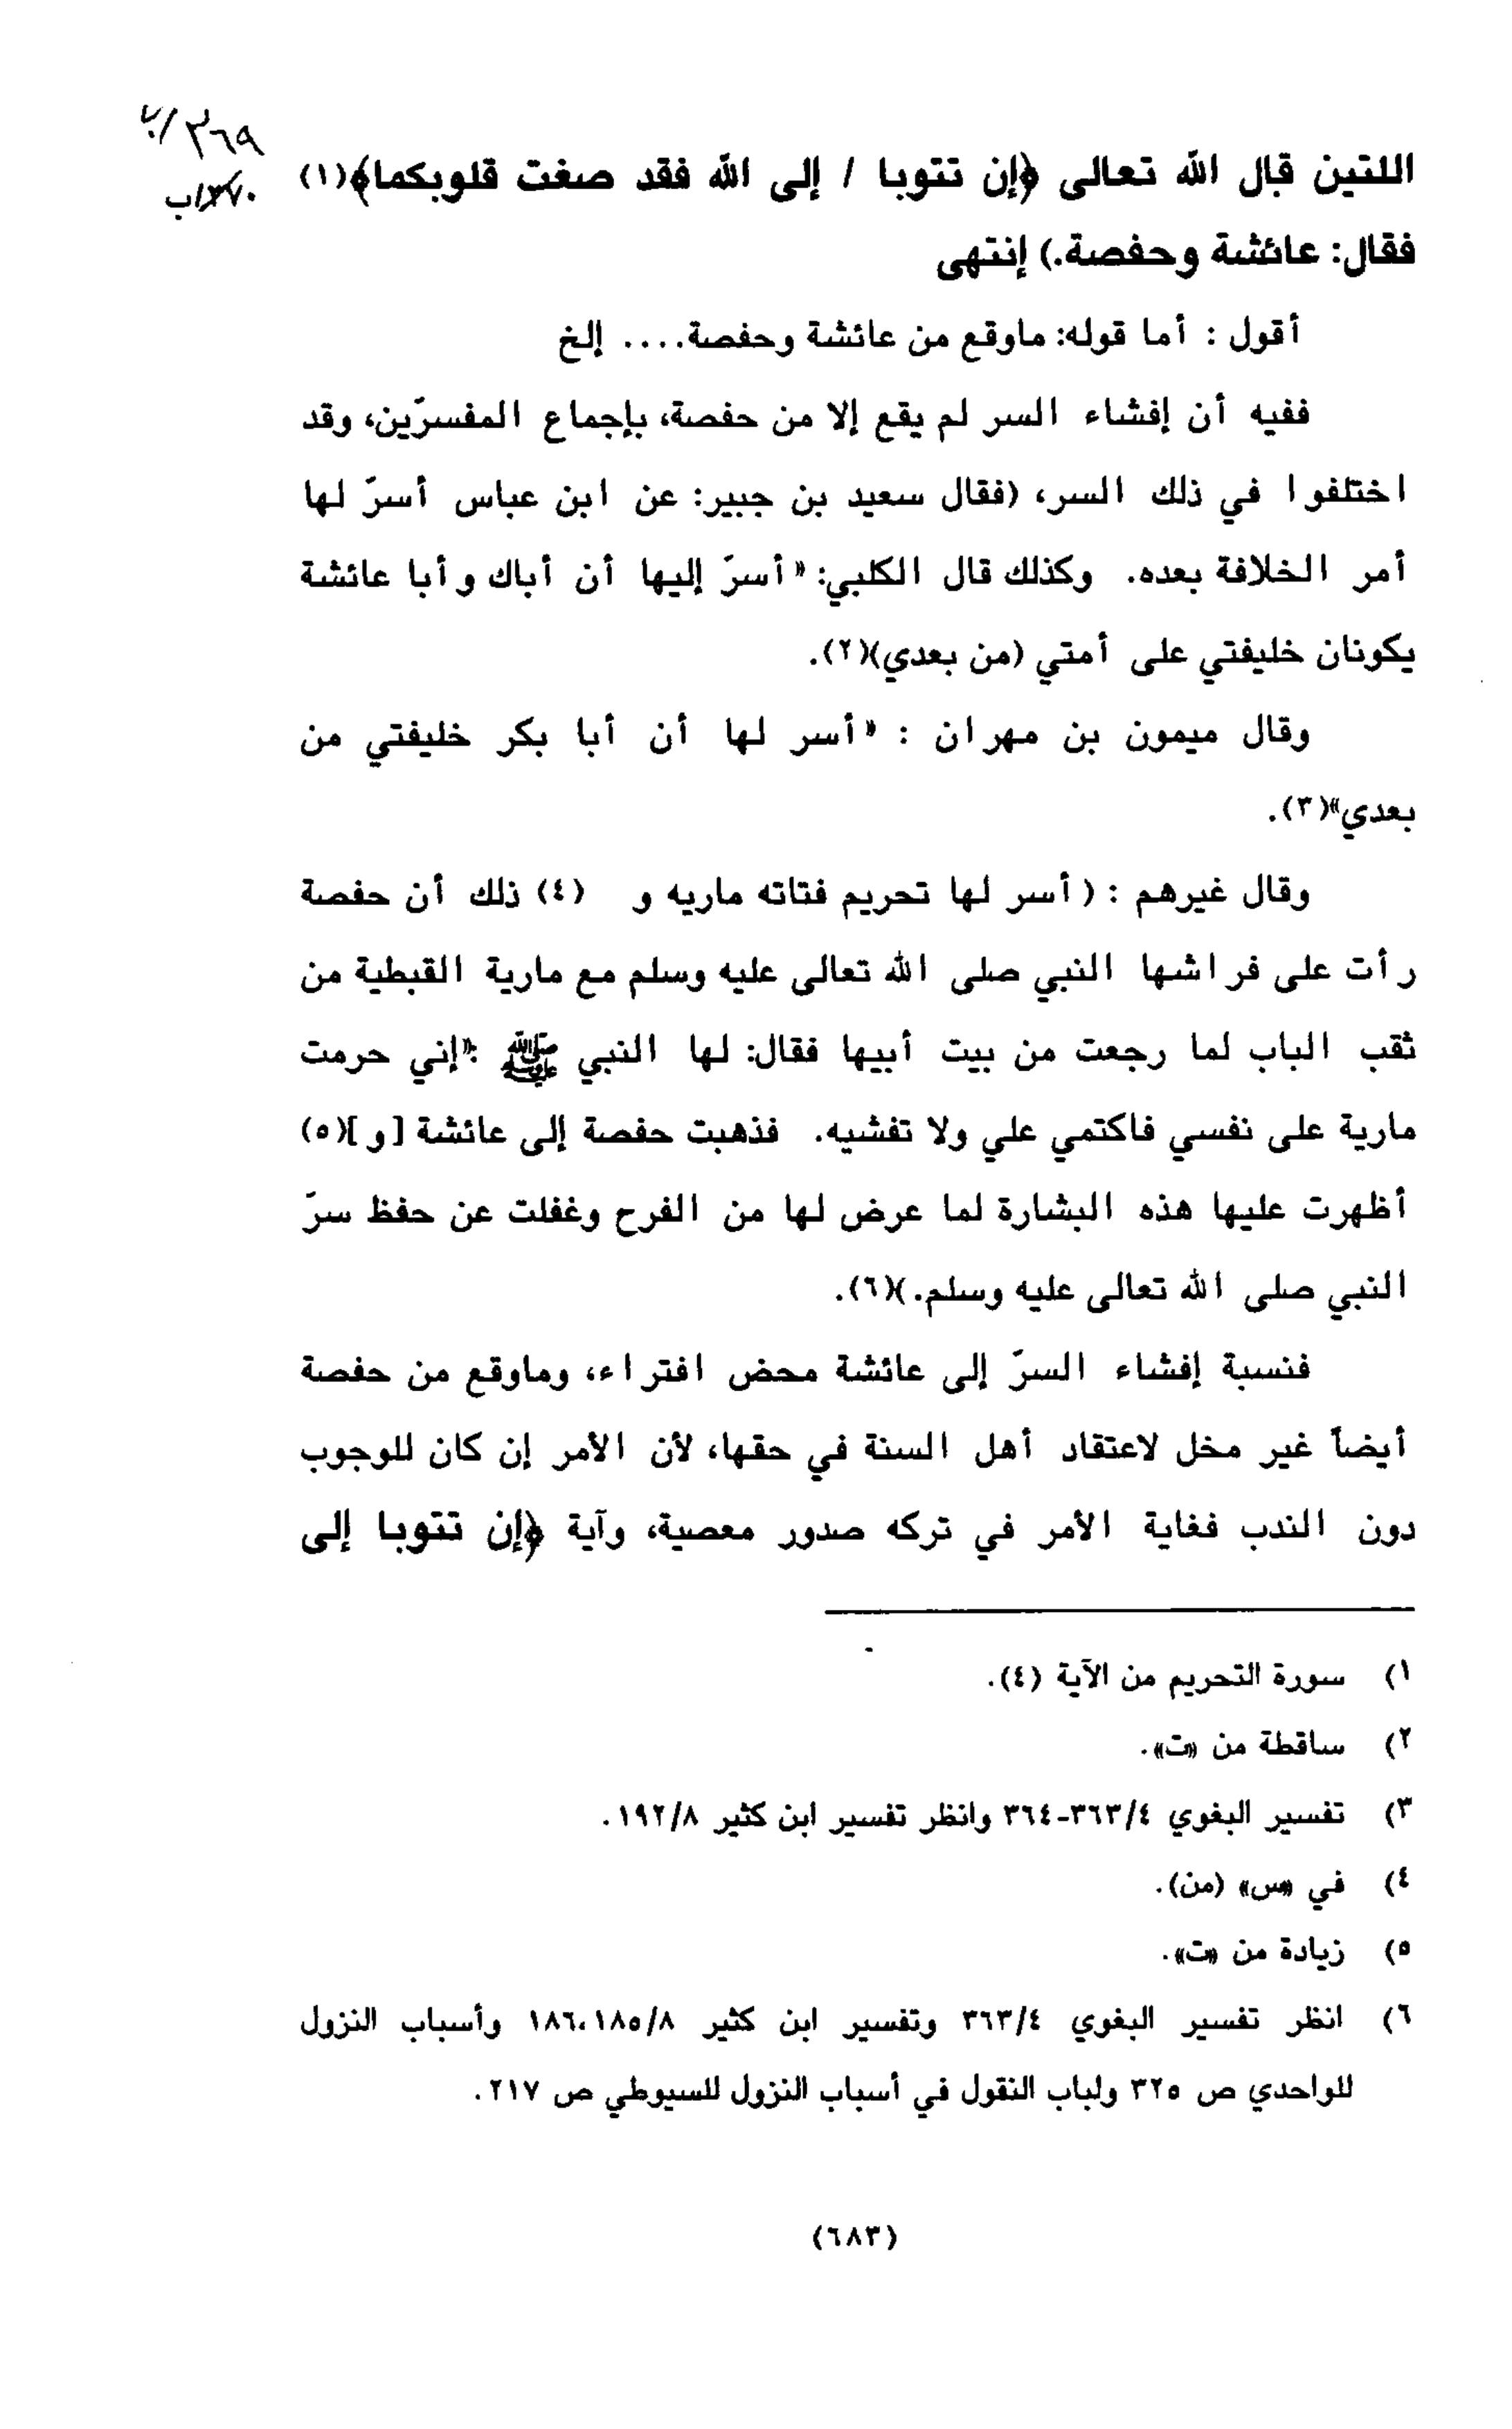 ٣٦٩/ب
٣٧٠/ب
اللتين قال الله تعالى ﴿إن تتوبا / إلى الله فقد صغت قلوبكما﴾(١)
فقال: عائشة وحفصة.) إنتهى
أقول : أما قوله: ماوقع من عائشة وحفصة.... إلخ
ففيه أن إفشاء السر لم يقع إلا من حفصة، بإجماع المفسرّين، وقد
اختلفوا في ذلك السر، (فقال سعيد بن جبير: عن ابن عباس أسرّ لها
أمر الخلافة بعده. وكذلك قال الكلبي: «أسرّ إليها أن أباك وأبا عائشة
يكونان خليفتي على أمتي (من بعدي)(٢).
وقال ميمون بن مهران : «أسر لها أن أبا بكر خليفتي من
بعدي»(٣).
وقال غيرهم : (أسر لها تحريم فتاته ماريه و (٤) ذلك أن حفصة
رأت على فراشها النبي صلى الله تعالى عليه وسلم مع مارية القبطية من
ثقب الباب لما رجعت من بيت أبيها فقال: لها النبي ﷺ :«إني حرمت
مارية على نفسي فاكتمي علي ولا تفشيه. فذهبت حفصة إلى عائشة [و](٥)
أظهرت عليها هذه البشارة لما عرض لها من الفرح وغفلت عن حفظ سرّ
النبي صلى الله تعالى عليه وسلم.)(٦).
فنسبة إفشاء السرّ إلى عائشة محض افتراء، وماوقع من حفصة
أيضاً غير مخل لاعتقاد أهل السنة في حقها، لأن الأمر إن كان للوجوب
دون الندب فغاية الأمر في تركه صدور معصية، وآية ﴿إن تتوبا إلى
١) سورة التحريم من الآية (٤).
٢) ساقطة من «ت».
٣) تفسير البغوي ٣٦٣/٤-٣٦٤ وانظر تفسير ابن كثير ١٩٢/٨.
٤) في «س» (من).
٥) زيادة من «ت».
٦) انظر تفسير البغوي ٣٦٣/٤ وتفسير ابن كثير ١٨٦،١٨٥/٨ وأسباب النزول
للواحدي ص ٣٢٥ ولباب النقول في أسباب النزول للسيوطي ص ٢١٧.
(٦٨٣)